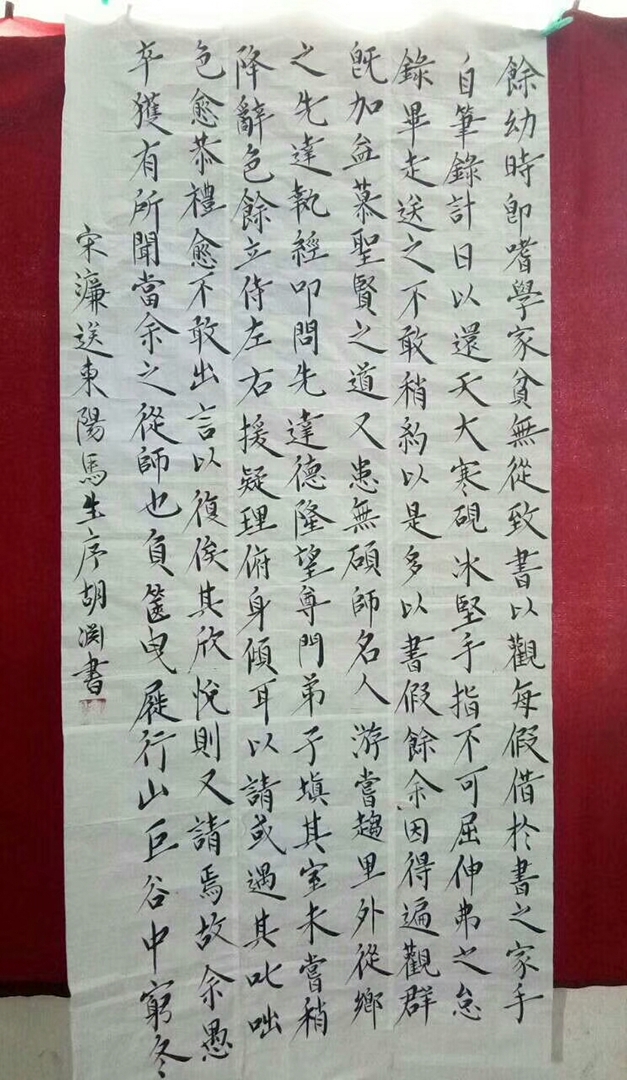 餘幼時即嗜學家貧無從致書以觀每假借於書之家手
自筆錄計日以還天大寒硯冰堅手指不可屈伸弗之怠
錄畢走送之不敢稍約以是多以書假餘余因得遍觀群
既加益慕聖賢之道又患無碩師名人游嘗趨里外從鄉
之先達執經叩問先達德隆望尊門弟子填其室未嘗稍
降辭色餘立侍左右援疑理俯身傾耳以請或遇其叱咄
色愈恭禮愈不敢出言以復俟其欣悅則又請焉故余愚
卒獲有所聞當余之從師也負篋曳屣行山巨谷中窮冬
宋濂送東陽馬生序胡渊書